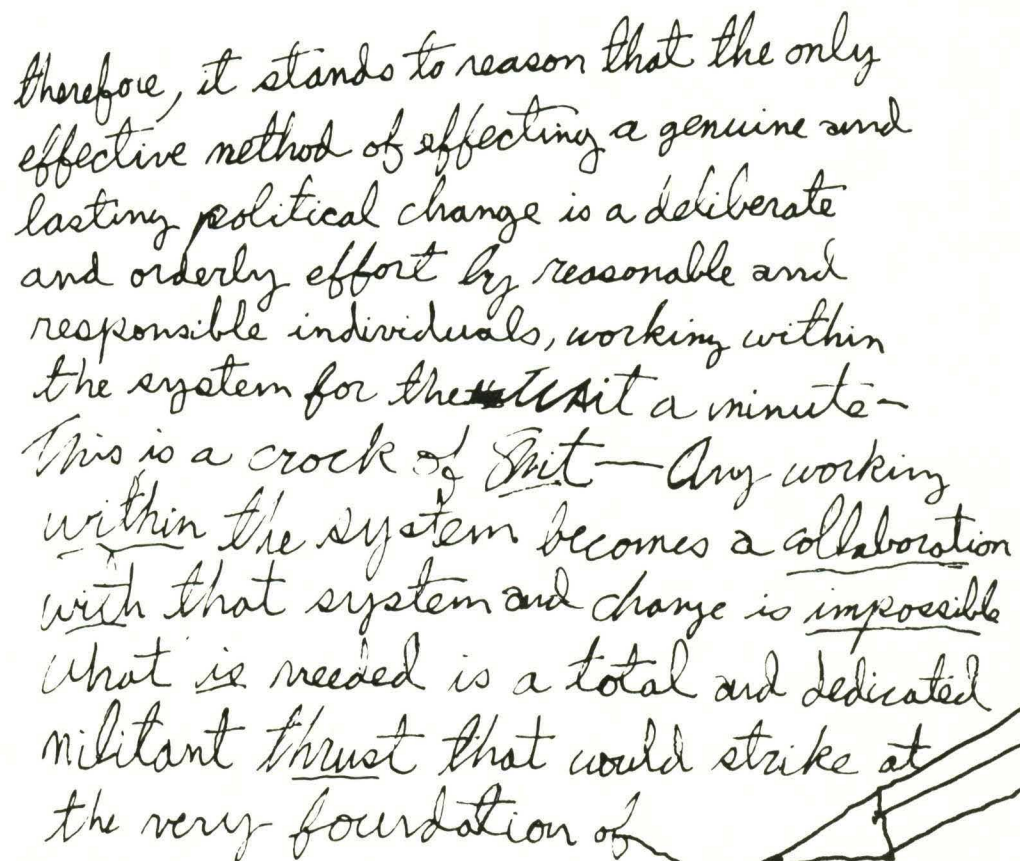 therefore, it stands to reason that the only
effective method of effecting a genuine and
lasting political change is a deliberate
and orderly effort by reasonable and
responsible individuals, working within
the system for the Wait a minute—
This is a crock of Shit — Any working
within the system becomes a collaboration
with that system and change is impossible
What is needed is a total and dedicated
militant thrust that would strike at
the very foundation of